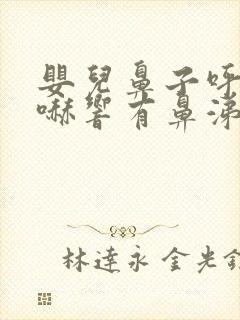 嬰兒鼻子呼
嚇響有鼻涕
林達永 金光